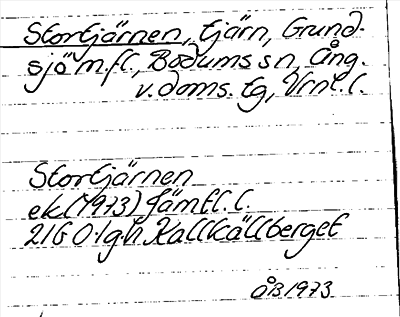 Stortjärnen, tjärn, Grund-
sjö m.fl., Bodums sn, Ång.
v. doms. tg, Vrnl. l.
Stortjärnen
ek. (1973) Jämtl. l.
21G 0. lg. h. Kallkällberget
ÅB 1973